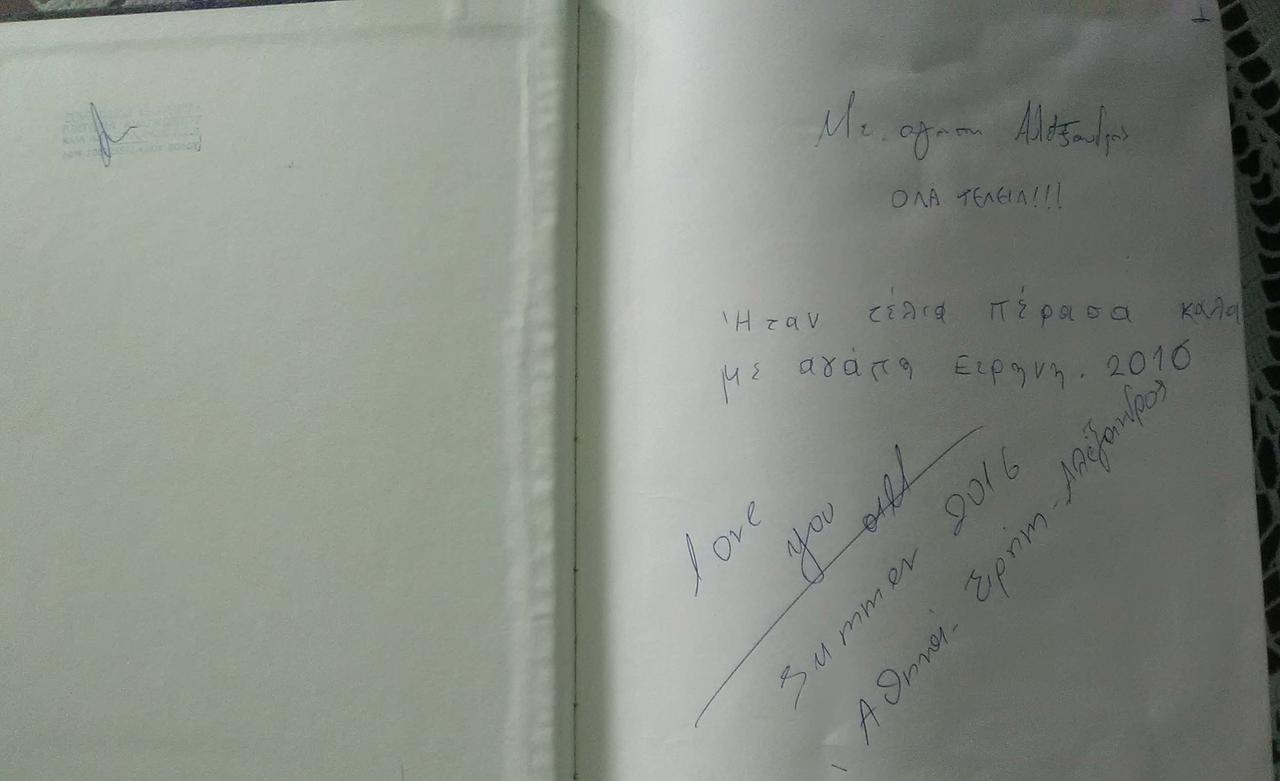 Με αγαπη Αλέξανδρος
ΟΛΑ ΤΕΛΕΙΑ!!!
Ήταν τέλια πέρασα καλα
με αγάπη Ειρηνη. 2016
love you all
summer 2016
Ειρήνη - Αλέξανδρος